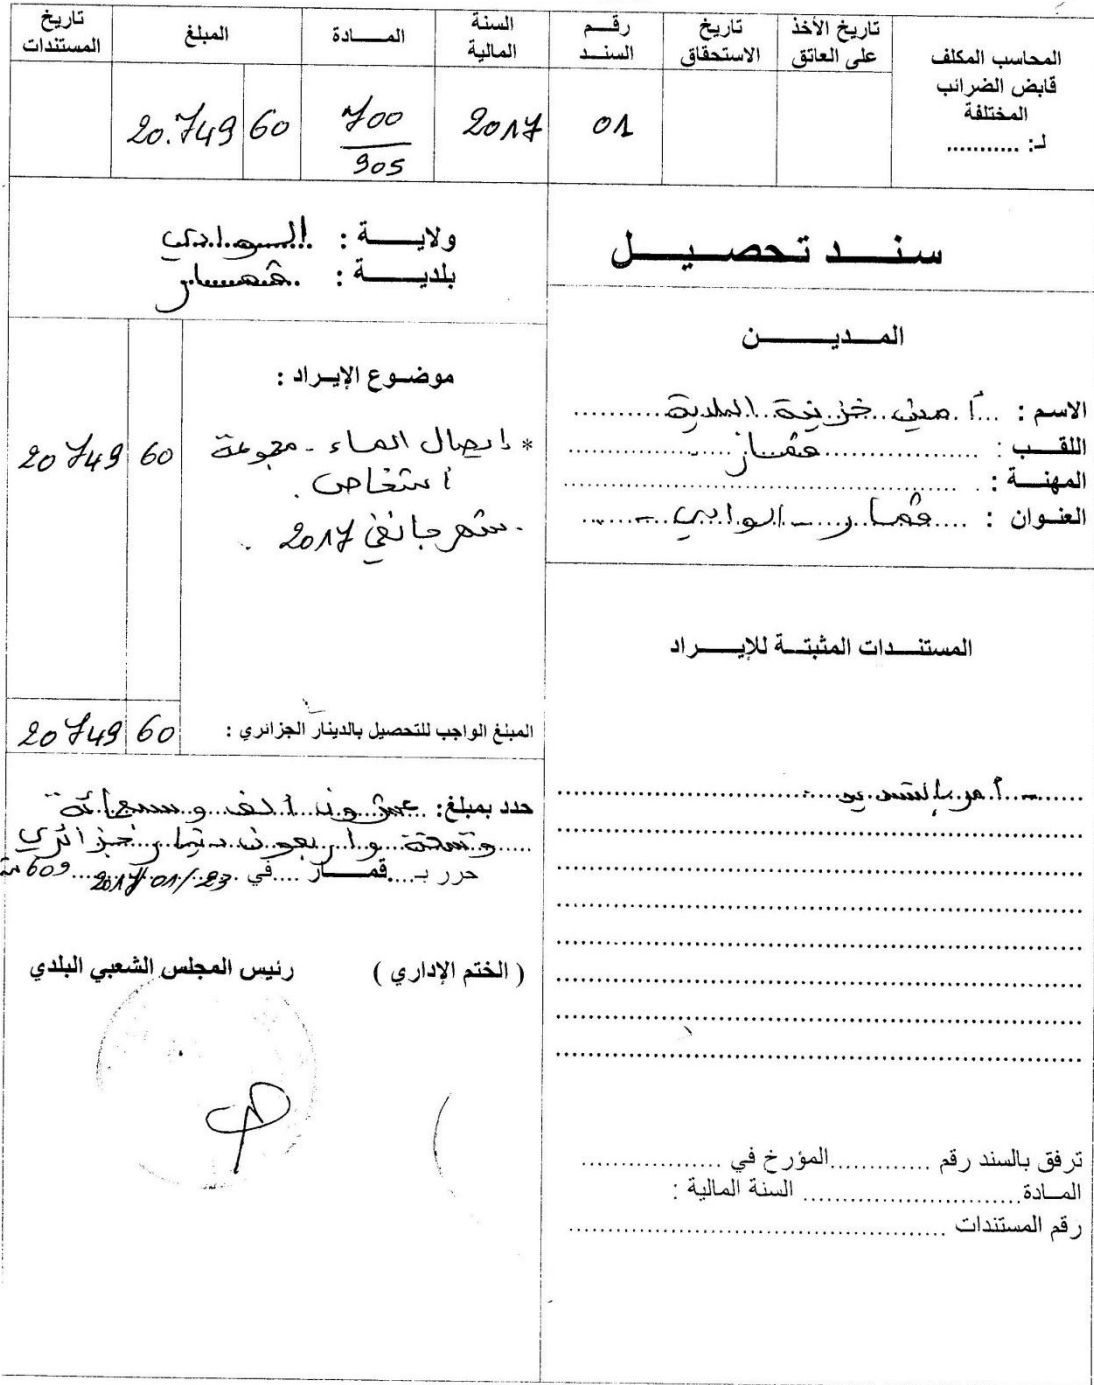 المحاسب المكلف
قابض الضرائب
المختلفة
لـ: ...........
تاريخ الأخذ على العاتق
تاريخ الاستحقاق
رقم السند
01
السنة المالية
2017
المادة
700
905
المبلغ
20.749 60
تاريخ المستندات
سند تحصيل
المدين
الاسم : أمين خزينة البلدية
اللقب : قمار
المهنة :
العنوان : قمار - الوادي -
المستندات المثبتة للإيراد
- أمر بالتسديد
ترفق بالسند رقم .............المؤرخ في ..................
المادة............................ السنة المالية :
رقم المستندات ................................................
ولاية : الوادي
بلدية : قمار
موضوع الإيراد :
* إيصال الماء - مجموعة
أشخاص .
- شهر جانفي 2017 .
20749 60
المبلغ الواجب للتحصيل بالدينار الجزائري :
20749 60
حدد بمبلغ: عشرون ألف وسبعمائة
وتسعة وأربعون دينار جزائري
حرر بـ....قمـــار ....في 2017/01/23 و60
( الختم الإداري )
رئيس المجلس الشعبي البلدي